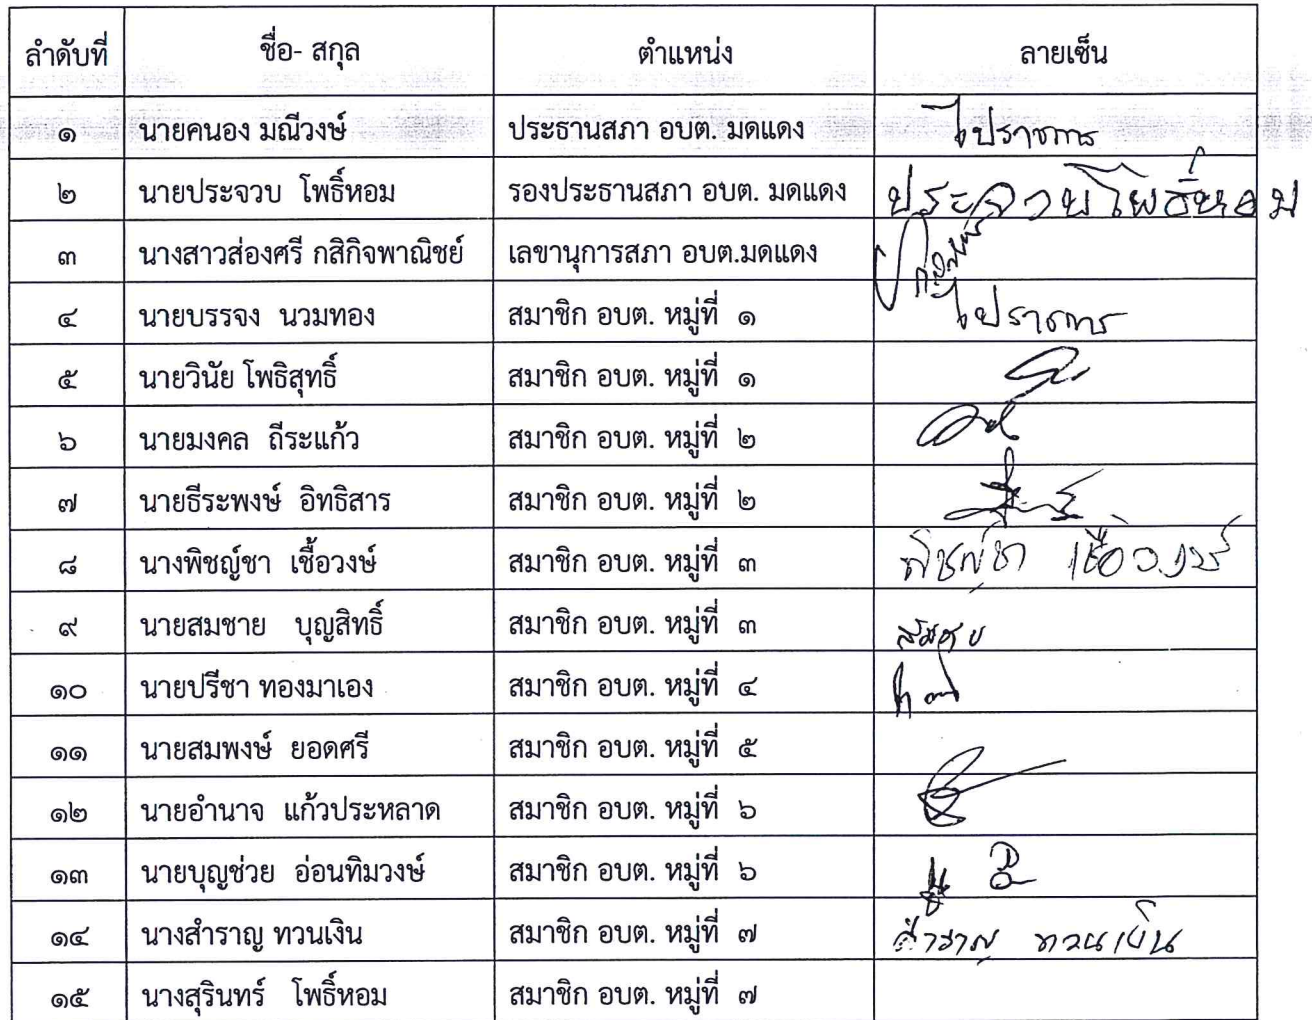 ลำดับที่ ชื่อ- สกุล ตำแหน่ง ลายเซ็น
๑ นายคนอง มณีวงษ์ ประธานสภา อบต. มดแดง ไปราชการ
๒ นายประจวบ โพธิ์หอม รองประธานสภา อบต. มดแดง ประจวบ โพธิ์หอม
๓ นางสาวส่องศรี กสิกิจพาณิชย์ เลขานุการสภา อบต.มดแดง
๔ นายบรรจง นวมทอง สมาชิก อบต. หมู่ที่ ๑ ไปราชการ
๕ นายวินัย โพธิสุทธิ์ สมาชิก อบต. หมู่ที่ ๑
๖ นายมงคล ถีระแก้ว สมาชิก อบต. หมู่ที่ ๒
๗ นายธีระพงษ์ อิทธิสาร สมาชิก อบต. หมู่ที่ ๒
๘ นางพิชญ์ชา เชื้อวงษ์ สมาชิก อบต. หมู่ที่ ๓ พิชญ์ชา เชื้อวงษ์
๙ นายสมชาย บุญสิทธิ์ สมาชิก อบต. หมู่ที่ ๓ สมชาย
๑๐ นายปรีชา ทองมาเอง สมาชิก อบต. หมู่ที่ ๔
๑๑ นายสมพงษ์ ยอดศรี สมาชิก อบต. หมู่ที่ ๕
๑๒ นายอำนาจ แก้วประหลาด สมาชิก อบต. หมู่ที่ ๖
๑๓ นายบุญช่วย อ่อนทิมวงษ์ สมาชิก อบต. หมู่ที่ ๖
๑๔ นางสำราญ ทวนเงิน สมาชิก อบต. หมู่ที่ ๗ สำราญ ทวนเงิน
๑๕ นางสุรินทร์ โพธิ์หอม สมาชิก อบต. หมู่ที่ ๗